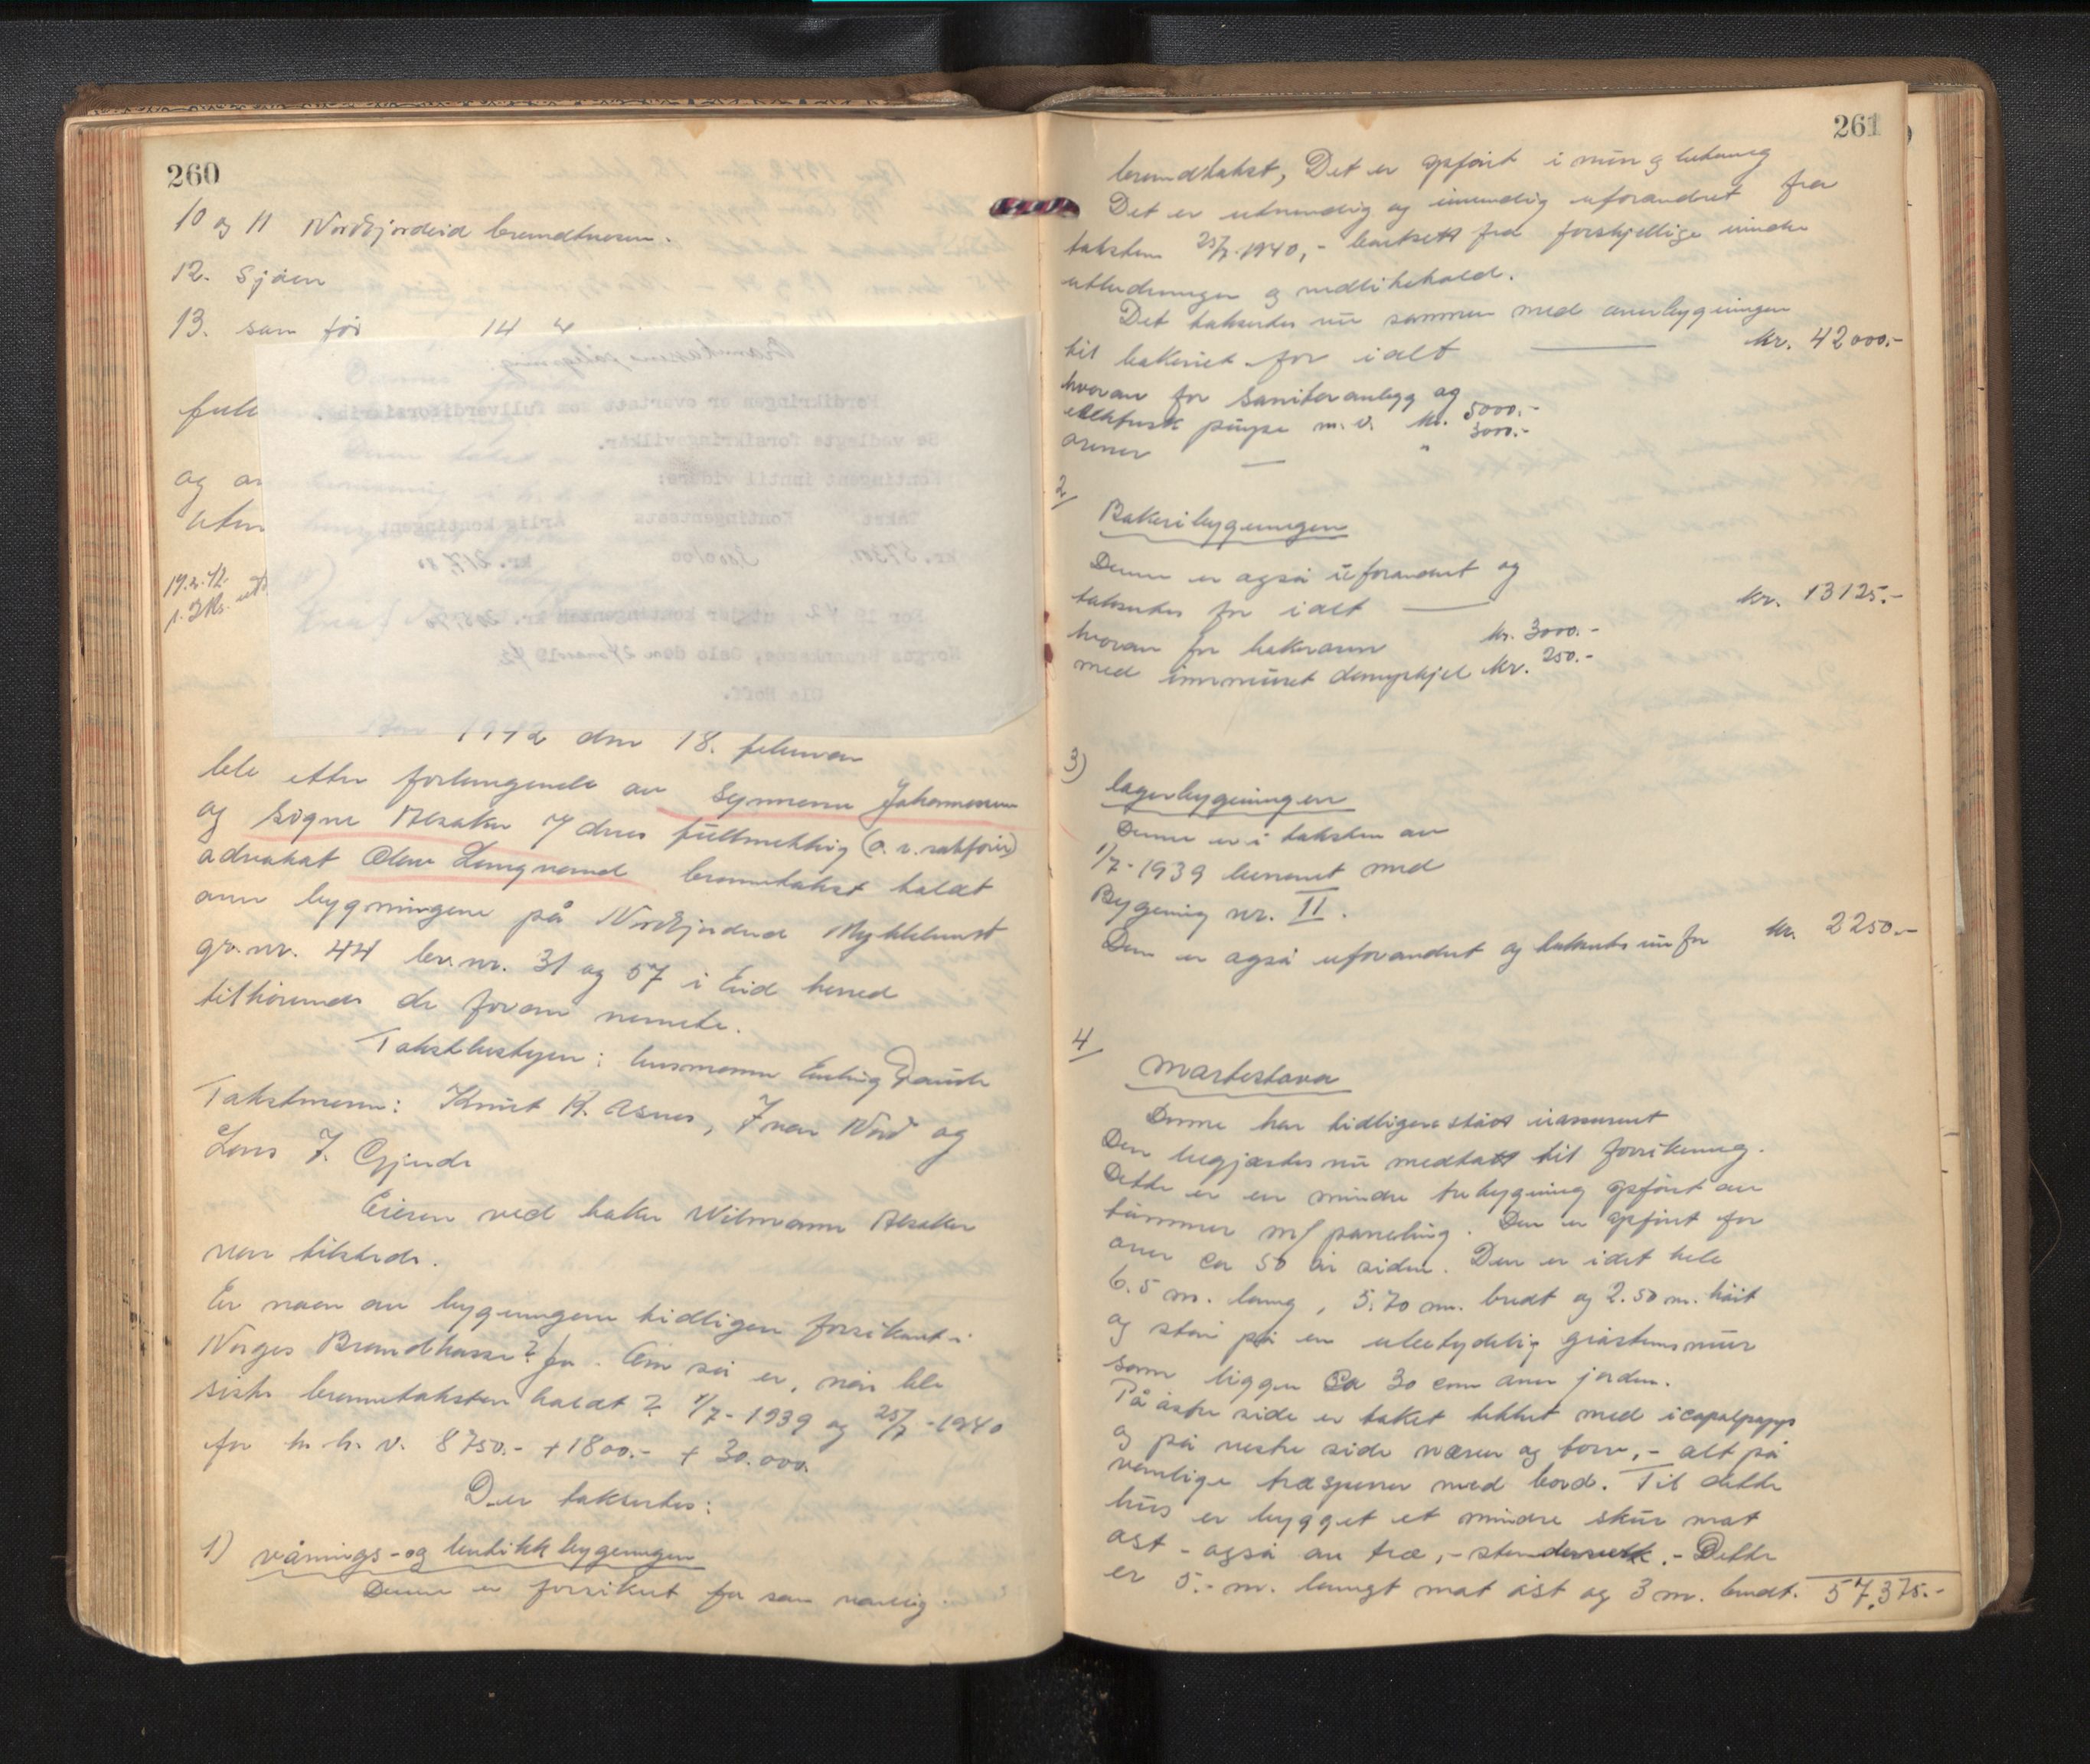 260
10 og 11 Nordfjordeid brandtvesen.
12. Sjøen
13. som før 14 4
full
og an
uten
19.2.42.
Brannkassens påtegning.
Fordringen er overlatt som fullverdiforsikring.
Se vedlagte forsikringsvilkår.
Kontingent inntil videre:
Takst Kontingentsats Årlig kontingent
kr. 57300. kr. 217.80
For 19 42 utgjør kontingenten kr.
Norges Brannkasse, Oslo den 19 42
Ole Hoff.
1942 den 18. februar
ble etter forlangende av Synneva Johannessen
og Signe Alsaker ved deres fullmektig (o. r. sakfører)
advokat Olav Langeland brannetakst haldt
over bygningene på Nordfjordeid Myklebust
gr.nr. 44 br.nr. 31 og 57 i Eid herred
tilhørende de foran nevnte.
Takstbestyrer: lensmann Erling Dauch
Takstmenn: Knut K. Asnes, Ivar Nord og
Lars J. Gjerde
Eieren ved baker Wilmann Alsaker
var tilstede.
Er noen av bygningene tidligere forsikret i
Norges Brandkasse? Ja. Om så er, når ble
siste brannetakster haldt? 1/7-1939 og 25/7-1940
for h. h. v. 8750.- + 1800.- + 30.000.
Der takseres:
1) vånings- og butikkbygningen
Denne er forsikret før som vanlig.
261
brandtakst, Det er opført i mur g betong
Det er utvendig og innvendig uforandret fra
taksten 25/7.1940, - bortsett fra forskjellige mindre
utbedringer g vedlikehold.
Det takseres nu sammen med overbygningen
til bakeriet for ialt kr. 42000.-
hvorav for saniteranlegg og
elektrisk pumpe m.v. kr. 5000.-
ovner " 3000.-
2/
Bakeribygningen
Denne er også uforandret og
takseres for ialt kr. 13125.-
hvorav for bakerovn kr. 3000.-
med innmuret dampkjel kr. 250.-
3)
lagerbygningen
Denne er i taksten av
1/7-1939 benevnt med
Bygning nr. II.
Den er også uforandret og takseres nu for kr. 2250.-
4/
Martestova
Denne har tidligere stått uassurert
Den begjæres nu medtatt til forsikring.
Dette er en mindre trebygning opført av
tømmer m/ paneling. Den er opført for
over ca 50 år siden. Den er i det hele
6.5 m. lang, 5.70 m. bredt og 2.50 m. høit
og står på en ubetydelig gråstensmur
som ligger Ca 30 cm over jorden.
På østre side er taket tekket med icopalpapp
og på vestre side næver og torv, - alt på
vanlige træsperrer med bord. Til dette
hus er bygget et mindre skur mot
øst - også av træ, - stenderverk. - Dette
er 5.- m. langt mot øst og 3 m. bredt. 57.375.-